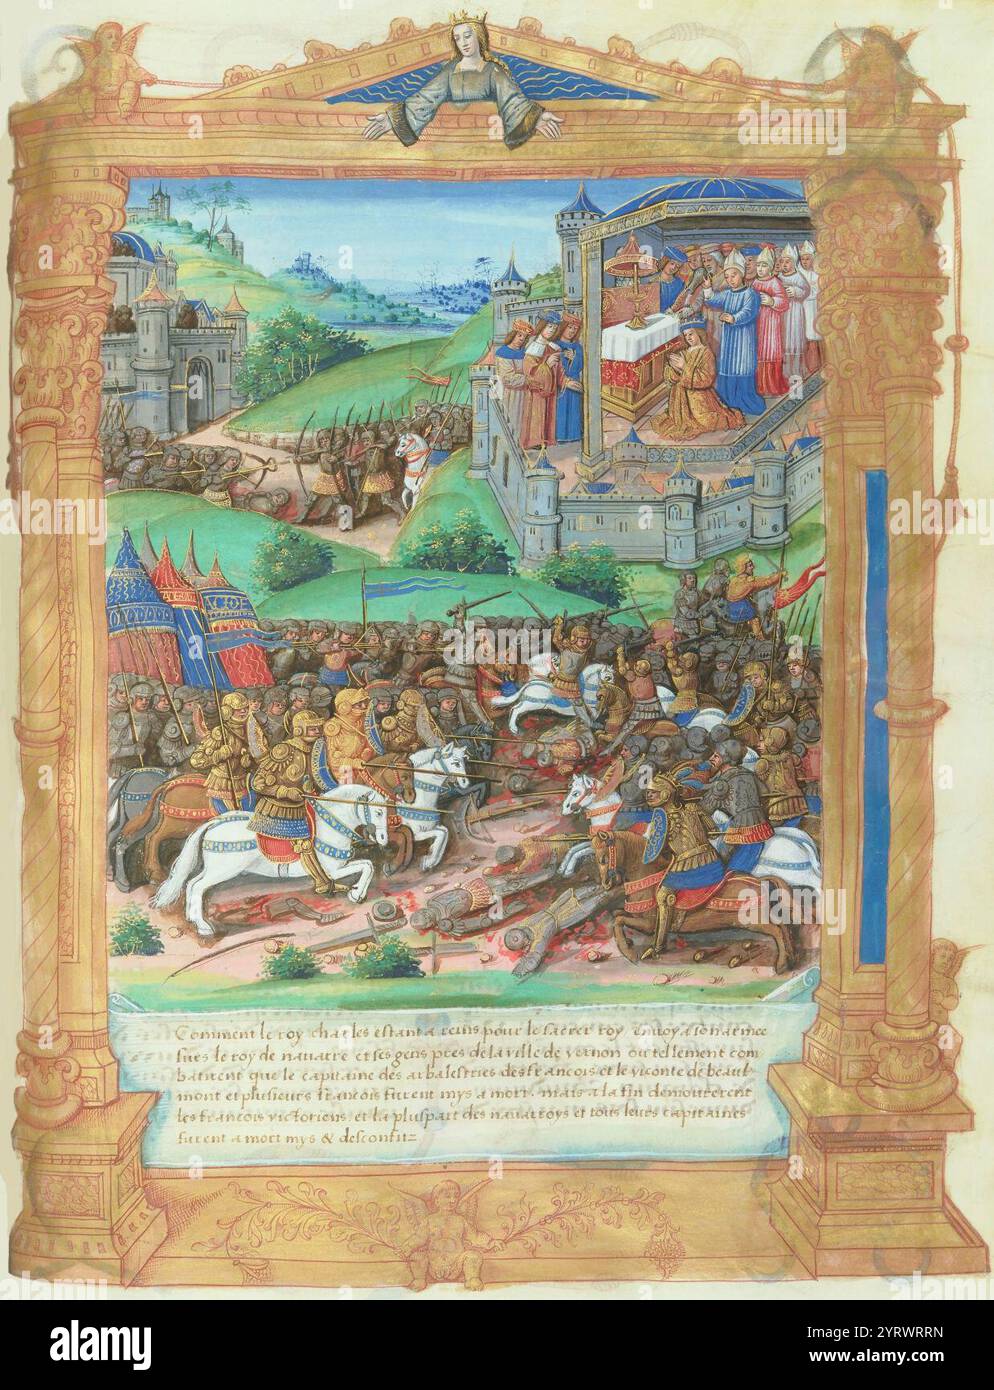 Comment le roy charles estant a reins pour le sacrer roy Envoya son armee
sus le roy de navarre et ses gens pres de la ville de vernon ou tellement com
batirent que le capitaine des arbalestries des francois et le viconte de beaul
mont et plusieurs francois furent mys a mort. mais a la fin demourerent
les francois victoriens. et la pluspart des navaroys et tous leurs capitaines
furent a mort mys & desconfitz
alamy
Image ID: 2YRWRRN
www.alamy.com